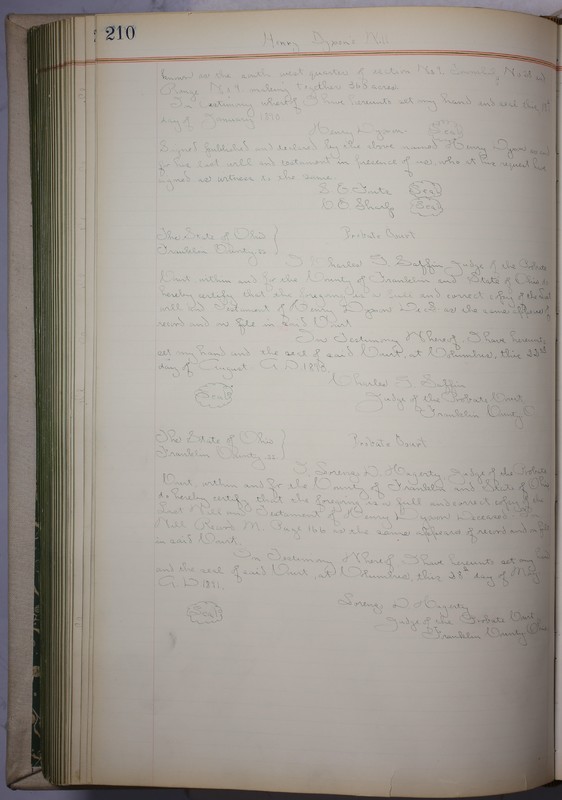 210
Henry Dyxons Will
known as the south west quarter of section No 1. Township, N
Range No 4 containing together 360 acres
In testimony whereof I have hereunto set my hand and seal this
day of January 1890
Henry Dyxon (Seal)
Signed published and declared by the above named Henry Dyxon as and
for his last will and testament in presence of us, who at his request have
signed as witness to the same.
S. E. (Seal)
C. E. (Seal)
The State of Ohio } Probate Court
Franklin County ss
I Charles G. Saffin Judge of the Probate
Court within and for the County of Franklin and State of Ohio do
hereby certify that the foregoing is a full and correct copy of the last
will and Testament of Henry Dyxon Decd as the same appears of
record and on file in said Court
In Testimony Whereof, I have hereunto
set my hand and the seal of said Court, at Columbus, this 22nd
day of August A.D.
Charles G. Saffin
(Seal) Judge of the Probate Court
Franklin County O.
The State of Ohio } Probate Court
Franklin County ss.
I, Lorenzo D. Hagerty, Judge of the Probate
Court within and for the County of Franklin and State of Ohio
do hereby certify that the foregoing is a full and correct copy of the
Last Will and Testament of Henry Dyxon Deceased
Will Record M. Page 166 as the same appears of record and on file
in said Court.
In Testimony Whereof I have hereunto set my hand
and the seal of said Court, at Columbus, this 28th day of May
A.D. 1891.
Lorenzo D. Hagerty
(Seal) Judge of the Probate Court
Franklin County Ohio